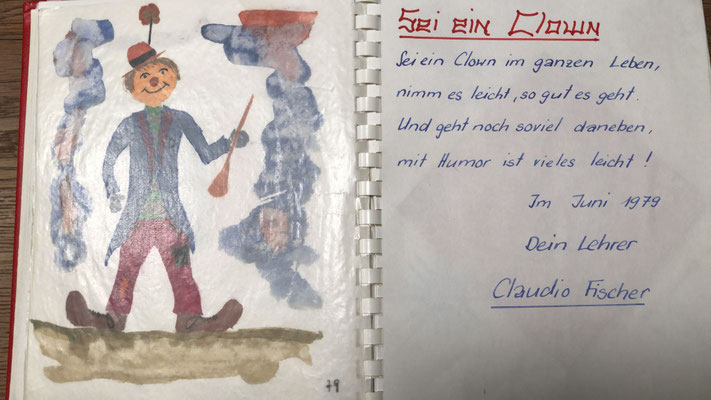 79
Sei ein Clown
Sei ein Clown im ganzen Leben,
nimm es leicht, so gut es geht.
Und geht noch soviel daneben,
mit Humor ist vieles leicht!
Im Juni 1979
Dein Lehrer
Claudio Fischer